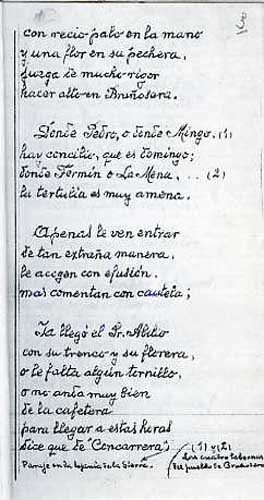 con recio palo en la mano
y una flor en su pechera,
juzga de mucho rigor
hacer alto en Brañosera.
Donde Pedro, o donde Mingo, (1)
hay concilio, que es domingo;
donde Fermín o La Mena, ... (2)
la tertulia es muy amena.
Apenas le ven entrar
de tan extraña manera,
le acogen con efusión,
mas comentan con cautela;
Ya llegó el Sr. Abilio
con su tronco y su florera,
o le falta algún tornillo,
o no anda muy bien
de la cafetera
para llegar a estas horas
dice que de "Cancarrera";
(1) y (2)
Los cuatro tabernas
del pueblo de Brañosera
Paraje en la lejanía de la Sierra.